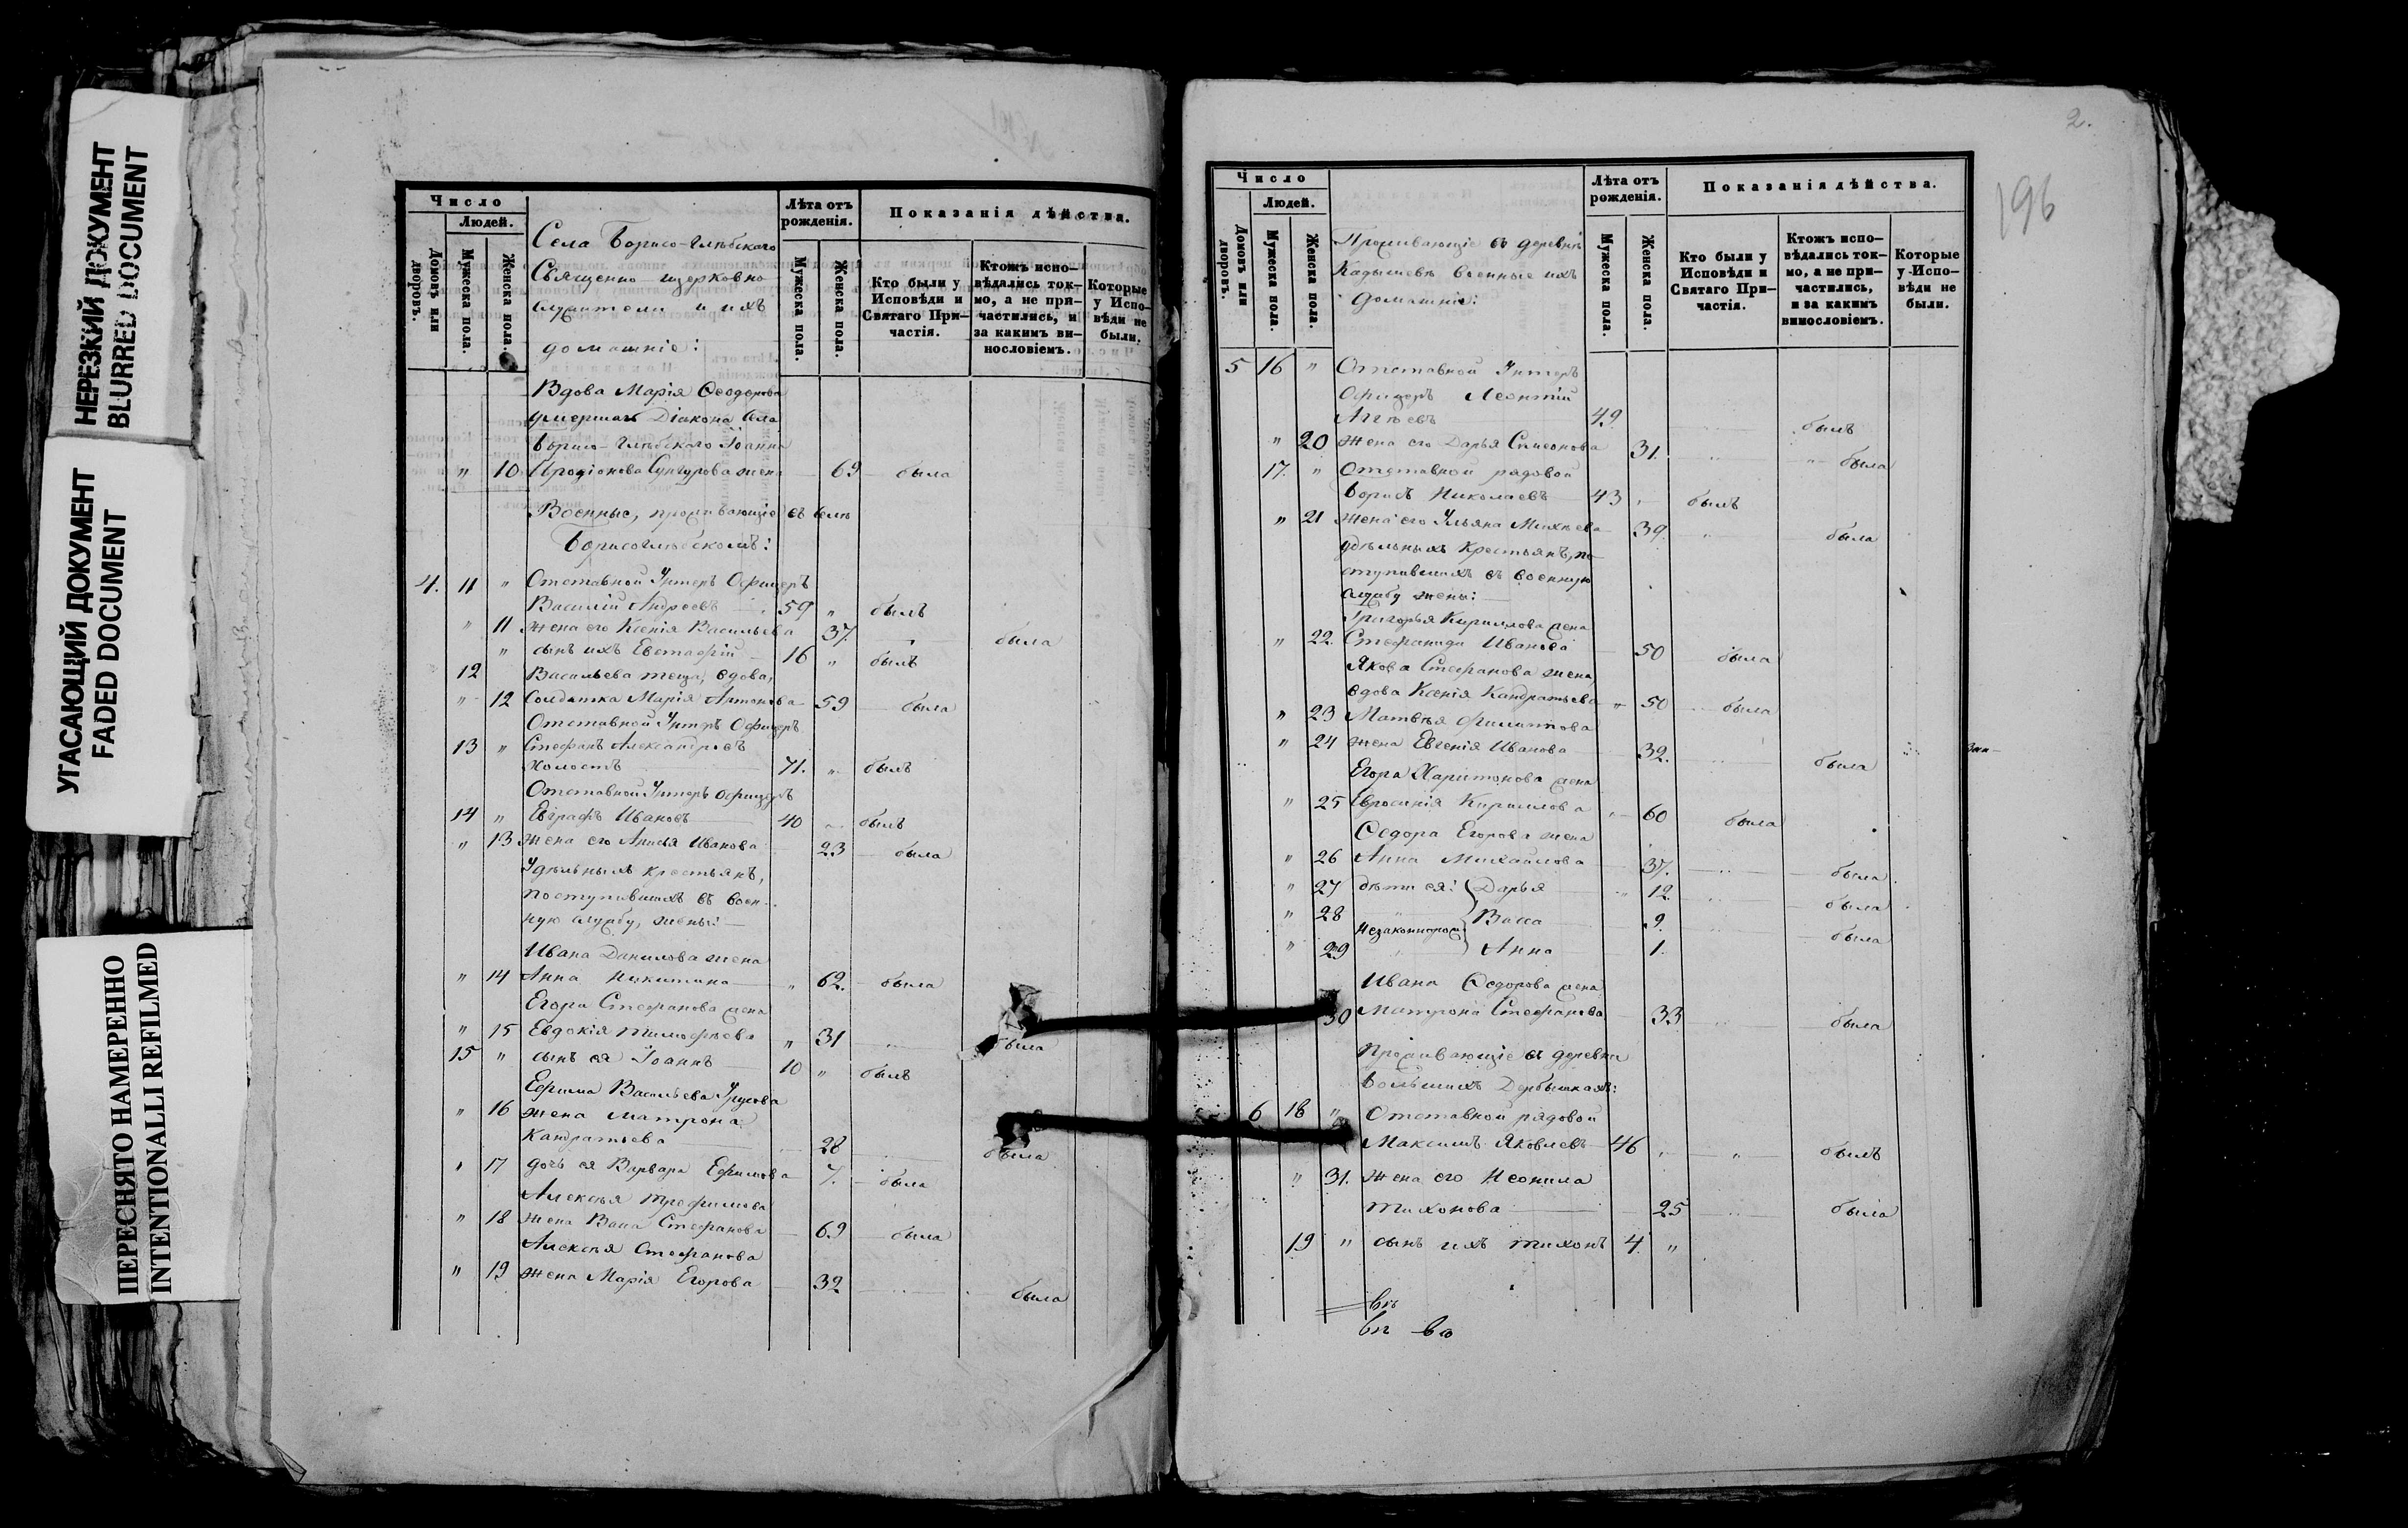 НЕРЕЗКИЙ ДОКУМЕНТ
BLURRED DOCUMENT
УГАСАЮЩИЙ ДОКУМЕНТ
FADED DOCUMENT
ПЕРЕСНЯТО НАМЕРЕННО
INTENTIONALLI REFILMED
Число
Людей.
Домовъ или дворовъ.
Мужеска пола.
Женска пола.
Села Борисо-Глѣбскаго
Священно-церковно-
служители и ихъ
домашніе:
Лѣта отъ рожденія.
Мужеска пола.
Женска пола.
Показанія дѣйства.
Кто были у Исповѣди и Святаго При-частія.
Ктожъ испо-вѣдались ток-мо, а не при-частились, и за какимъ ви-нословіемъ.
Которые у Испо-вѣди не были.
Вдова Марія Ѳеодорова
умершаго Діакона села
Борисо-Глѣбскаго Іоанна
" 10 Иродіонова Сунгурова жена 69 была
Военные, проживающіе въ селѣ
Борисоглѣбскомъ:
4. 11 " Отставной Унтеръ Офицеръ
Василій Андреевъ 59 " былъ
" 11 жена его Ксенія Васильева 37 " была
" сынъ ихъ Евстафій 16 " былъ
12 Васильева теща, вдова,
" 12 Солдатка Марія Антонова 59 была
Отставной Унтеръ Офицеръ
13 " Стефанъ Александровъ
холостъ 71. " былъ
Отставной Унтеръ Офицеръ
14 " Евграфъ Ивановъ 40 " былъ
" 13 жена его Анисья Иванова 23 была
Удѣльныхъ крестьянъ,
поступившихъ въ воен-
ную службу, жены:
Ивана Данилова жена
" 14 Анна Никитина " 62. была
Егора Стефанова жена
" 15 Евдокія Тимофеева " 31 была
15 " сынъ ея Іоаннъ 10 " былъ
Ефима Васильева Урусова
" 16 жена Матрона
Кандратьева 28 была
" 17 дочь ея Варвара Ефимова 7. была
Алексѣя Трофимова
" 18 жена Васса Стефанова 69 была
Алексѣя Стефанова
" 19 жена Марія Егорова 32 была
2.
196
Число
Людей.
Домовъ или дворовъ.
Мужеска пола.
Женска пола.
Проживающіе въ деревнѣ
Кадышевѣ военные и ихъ
домашніе:
Лѣта отъ рожденія.
Мужеска пола.
Женска пола.
Показанія дѣйства.
Кто были у Исповѣди и Святаго При-частія.
Ктожъ испо-вѣдались ток-мо, а не при-частились, и за какимъ винословіемъ.
Которые у Испо-вѣди не были.
5 16 " Отставной Унтеръ
Офицеръ Леонтій
Агѣевъ 49 былъ
" 20 жена его Дарья Симеонова 31. " " была
17. " Отставной рядовой
Борисъ Николаевъ 43 " былъ
" 21 жена его Ульяна Михѣева 39. " была
удѣльныхъ крестьянъ, по-
ступившихъ въ военную
службу жены:
Григорья Кириллова жена
" 22. Стефанида Иванова 50 была
Якова Стефанова жена
вдова Ксенія Кандратьева " 50 была
" 23 Матвѣя Филиппова
" 24 жена Евгенія Иванова 32. была
Егора Харитонова жена
" 25 Евросинія Кириллова 60 была
Ѳедора Егорова жена
" 26 Анна Михайлова 37. была
" 27 дѣти ея: Дарья 12. была
" 28 Васса 9. была
незаконнорож.
" 29 Анна 1.
Ивана Ѳедорова жена
30 Матрона Стефанова 33 была
Проживающіе въ деревнѣ
Большихъ Дербышкахъ:
6 18 " Отставной рядовой
Максимъ Яковлевъ 46 " " былъ
" 31. жена его Неонила
Тихонова 25 была
19 " сынъ ихъ Тихонъ 4. "